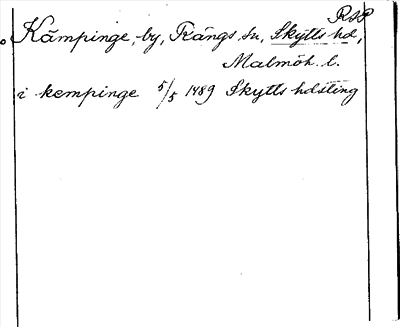 RAP
Kämpinge, by, Rängs sn, Skytts hd,
Malmöh. l.
i kempinge 5/5 1489 Skytts hdsting